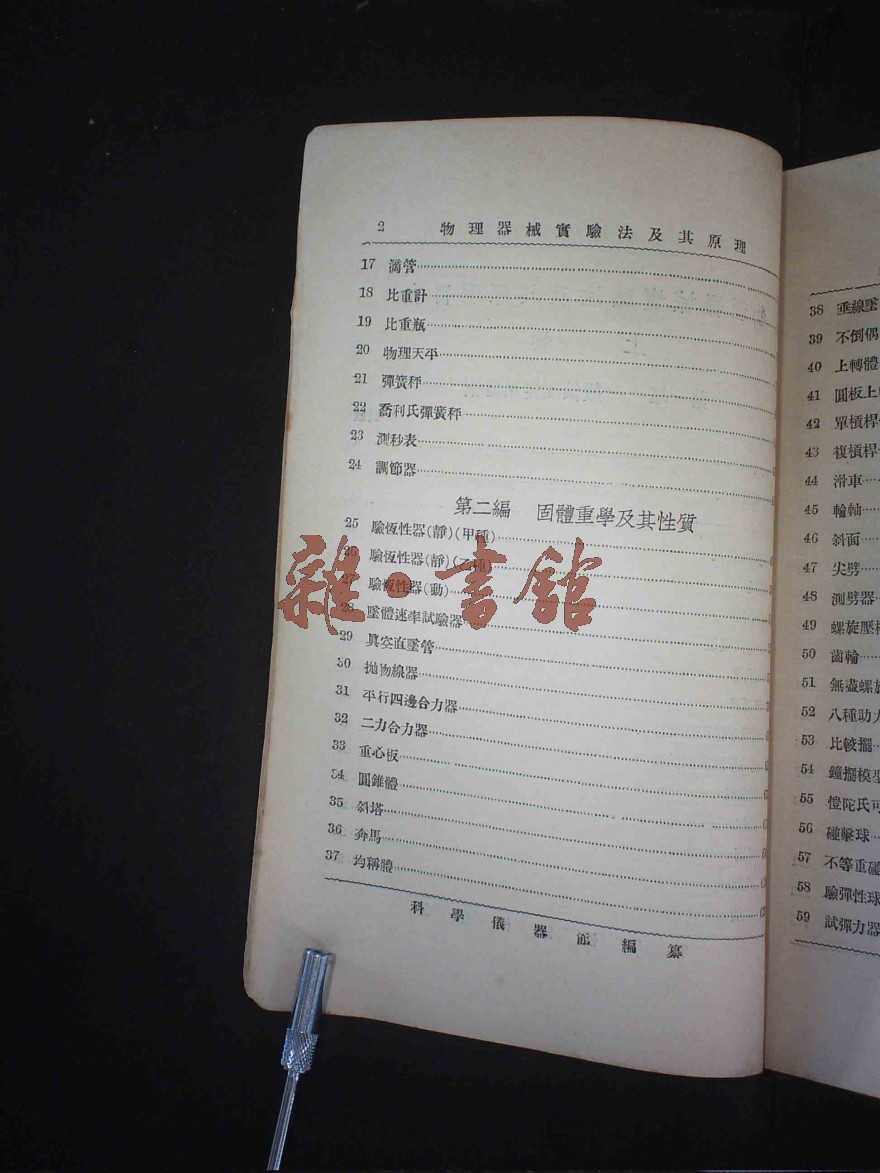 2 物理器械實驗法及其原理
17 滴管
18 比重計
19 比重瓶
20 物理天平
21 彈簧秤
22 喬利氏彈簧秤
23 測秒表
24 調節器
第二編 固體重學及其性質
25 驗恆性器(靜)(甲種)
26 驗恆性器(靜)(乙種)
27 驗恆性器(動)
28 墜體速率試驗器
29 眞空直墜管
30 拋物線器
31 平行四邊合力器
32 二力合力器
33 重心板
34 圓錐體
35 斜塔
36 奔馬
37 均稱體
科學儀器館編纂
雜·書館
38 垂線墜
39 不倒偶
40 上轉體
41 圓板上
42 單槓桿
43 複槓桿
44 滑車
45 輪軸
46 斜面
47 尖劈
48 測劈器
49 螺旋壓
50 齒輪
51 無盡螺旋
52 八種助力
53 比較擺
54 鐘擺模型
55 愷陀氏可
56 碰擊球
57 不等重碰
58 驗彈性球
59 試彈力器